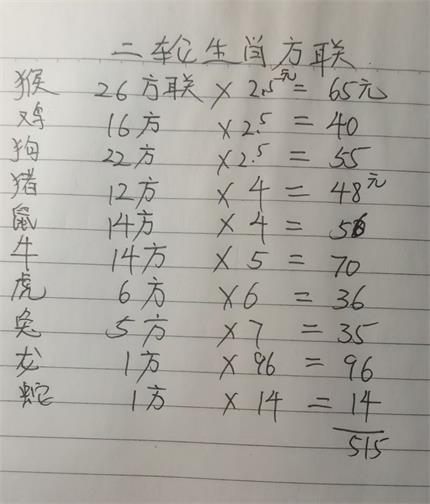 二轮生肖方联
猴 26方联 × 2.5元 = 65元
鸡 16方 × 2.5 = 40
狗 22方 × 2.5 = 55
猪 12方 × 4 = 48元
鼠 14方 × 4 = 56
牛 14方 × 5 = 70
虎 6方 × 6 = 36
兔 5方 × 7 = 35
龙 1方 × 96 = 96
蛇 1方 × 14 = 14
515